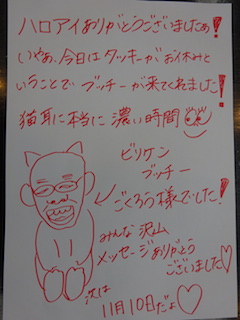 ハロアイありがとうございましたぁ!
いやぁ、今日はタッキーがお休みと
いうことでブッチーが来てくれました!
猫耳に本当に濃い時間
ビリケン
ブッチー
ごくろう様でした!
みんな沢山
メッセージありがとう
ございました♡
次は
11月10日だよ♡